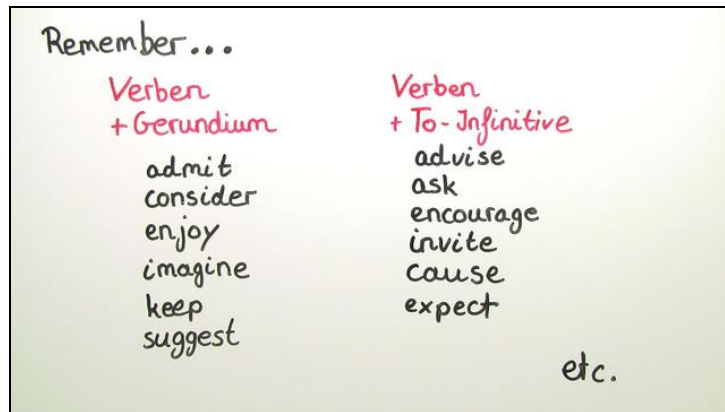 Remember...
Verben
+ Gerundium
admit
consider
enjoy
imagine
keep
suggest
Verben
+ To-Infinitive
advise
ask
encourage
invite
cause
expect
etc.